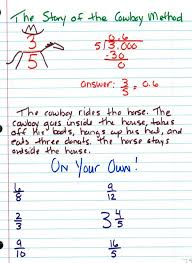 The Story of the Cowboy Method
3
5
0.6
5 3.000
-30
0
answer: 3/5 = 0.6
The cowboy rides the horse. The
cowboy goes inside the house, takes
off his boots, hangs up his hat, and
eats three donuts. The horse stays
outside the house.
ON YOUR OWN!
6/8 9/12
2/3 3 4/5
9/10 16/5